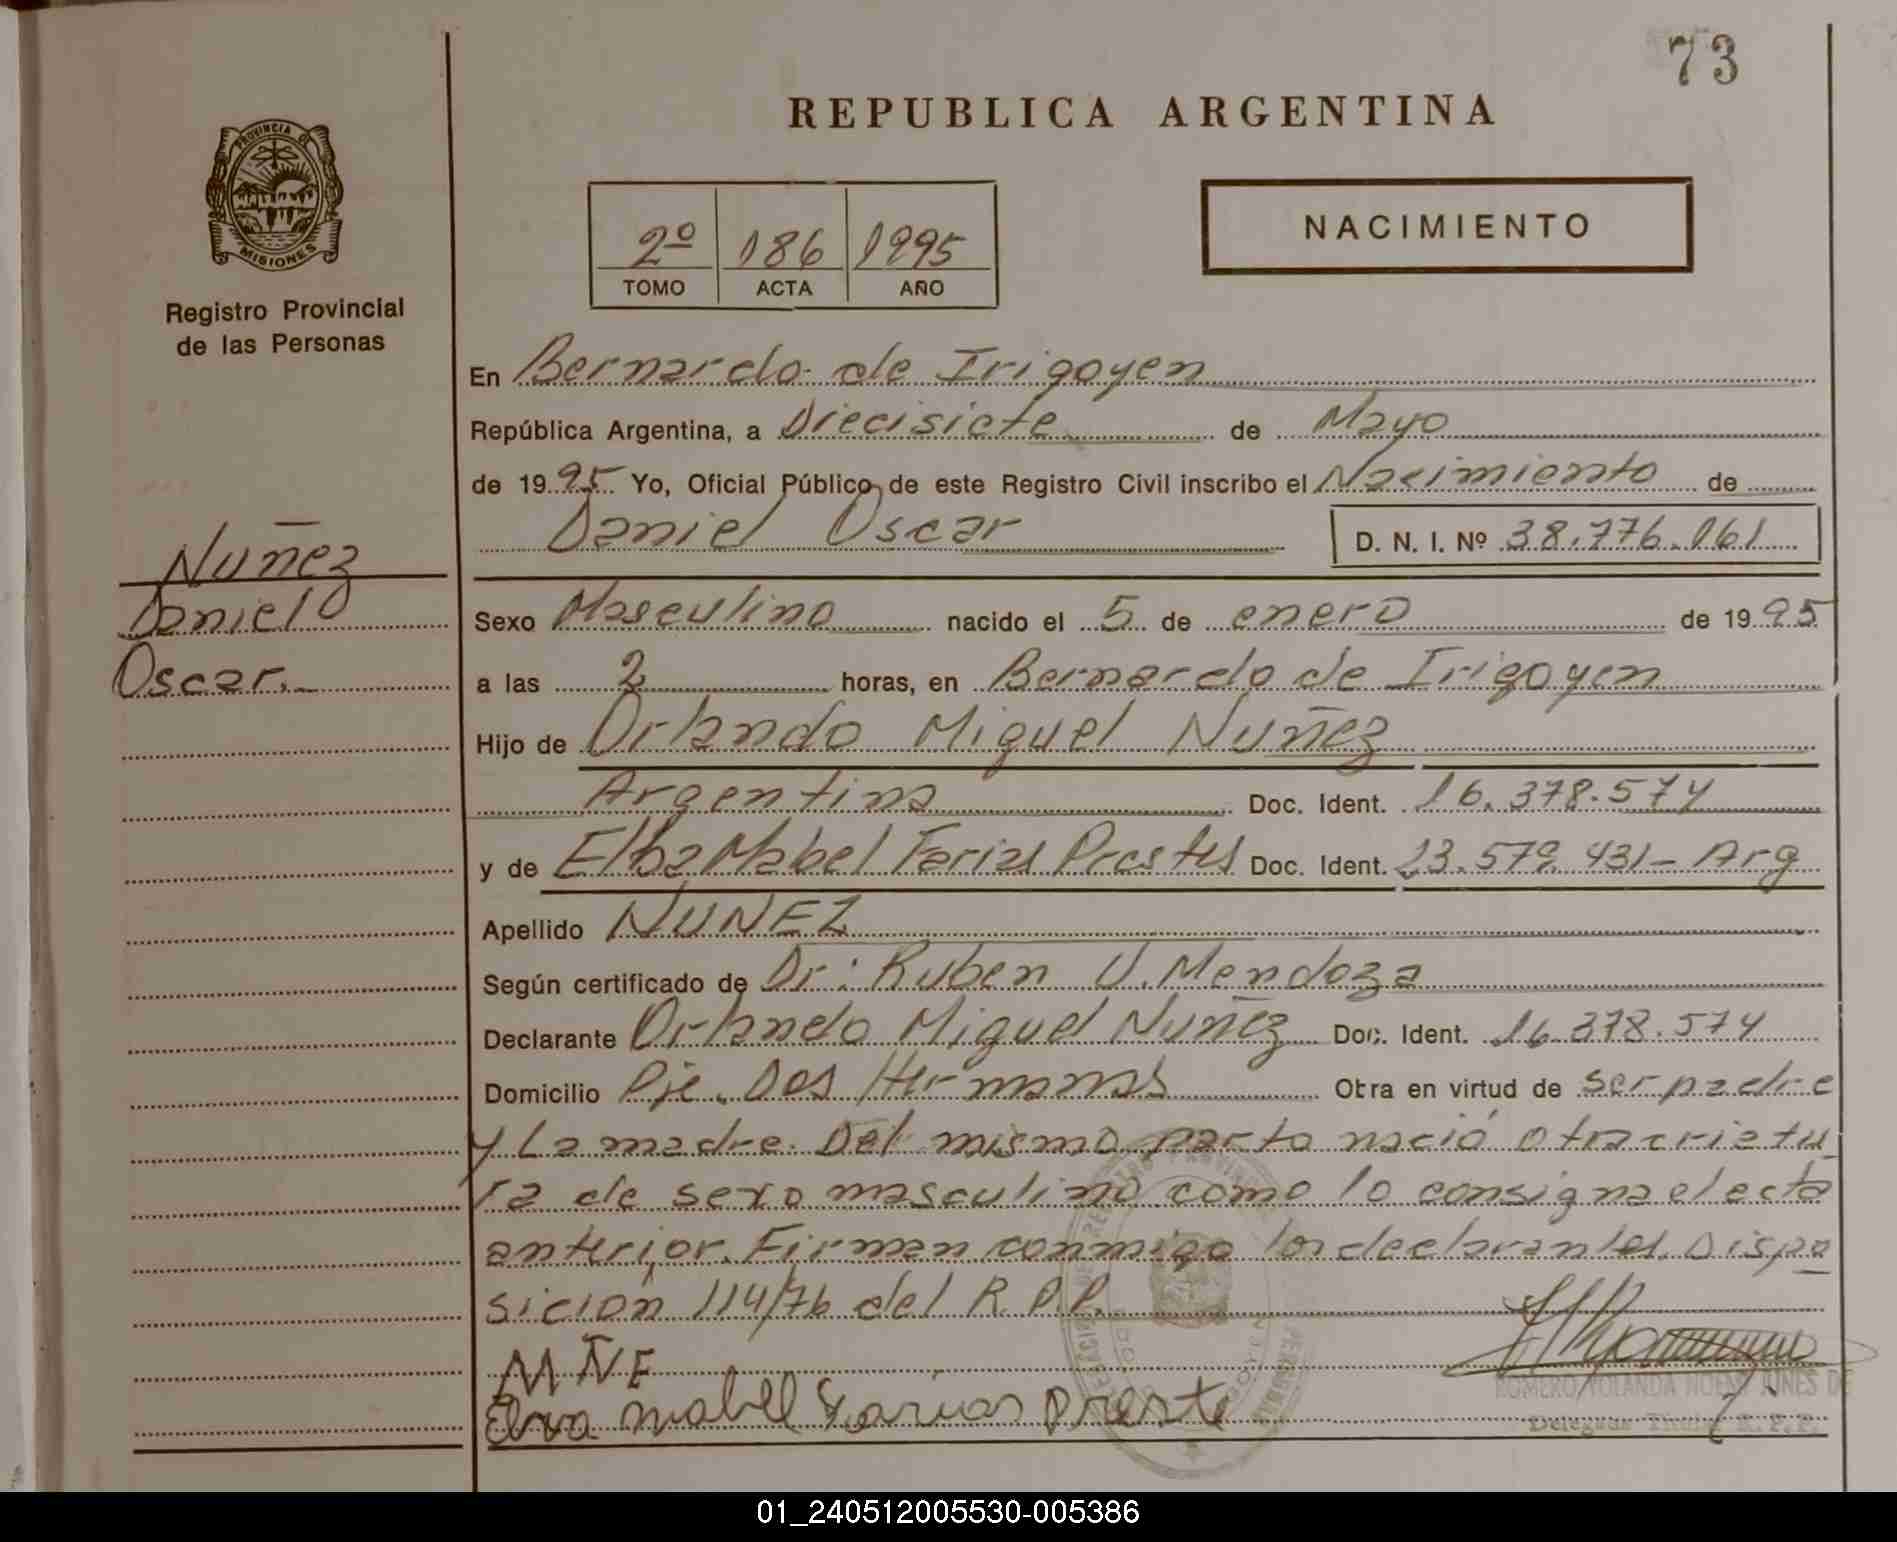 73
REPUBLICA ARGENTINA
PROVINCIA DE
MISIONES
Registro Provincial
de las Personas
2º 186 1995
TOMO ACTA AÑO
NACIMIENTO
En Bernardo de Irigoyen
República Argentina, a Diecisiete de Mayo
de 1995 Yo, Oficial Público de este Registro Civil inscribo el Nacimiento de
Daniel Oscar D. N. I. Nº 38.776.061
Nuñez
Daniel
Oscar.-
Sexo Masculino nacido el 5 de enero de 1995
a las 2 horas, en Bernardo de Irigoyen
Hijo de Orlando Miguel Nuñez
Argentina Doc. Ident. 16.378.574
y de Elba Mabel Farias Prestes Doc. Ident. 23.579.431- Arg
Apellido NUÑEZ
Según certificado de Dr: Ruben U. Mendoza
Declarante Orlando Miguel Nuñez Doc. Ident. 16.378.574
Domicilio Pje. Dos Hermanas Obra en virtud de ser padre
y La madre. Del mismo parto nació otra criatu
ra de sexo masculino como lo consigna el acta
anterior. Firman conmigo los declarantes. Dispo
sición 114/76 del R.P.P.
M Ñ E
Elva mabel Farias Preste
ROMERO YOLANDA NOEMI JUNES DE
Delegada Titular R.P.P.
01_240512005530-005386